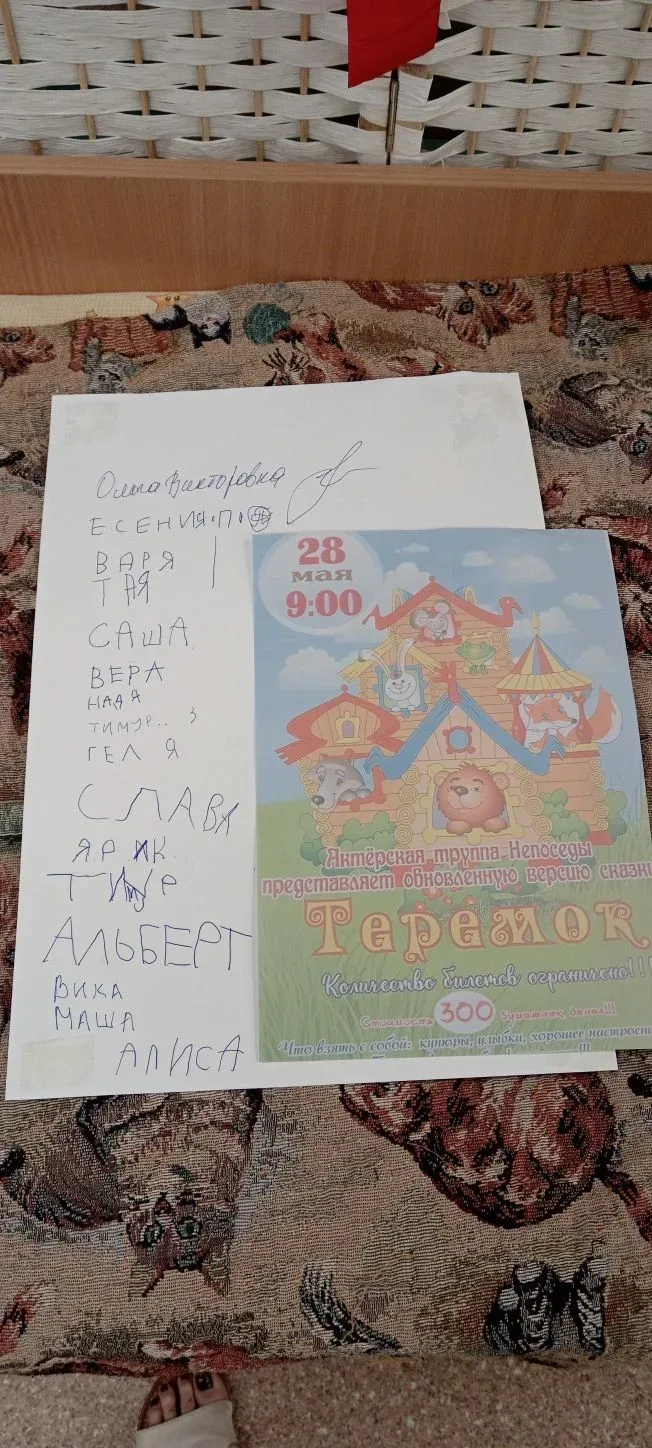 Ольга Викторовна
ЕСЕНИЯ.П.
ВАРЯ
ТАЯ
САША
ВЕРА
НАДЯ
ТИМУР..
ГЕЛЯ
СЛАВА
ЯРИК
ТИМУР
АЛЬБЕРТ
ВИКА
МАША
АЛИСА
28
мая
9:00
Актёрская труппа Непоседы
представляет обновлённую версию сказки
Теремок
Количество билетов ограничено!!!
Стоимость 300 бумажных денег!!!
Что взять с собой: купюры, улыбки, хорошее